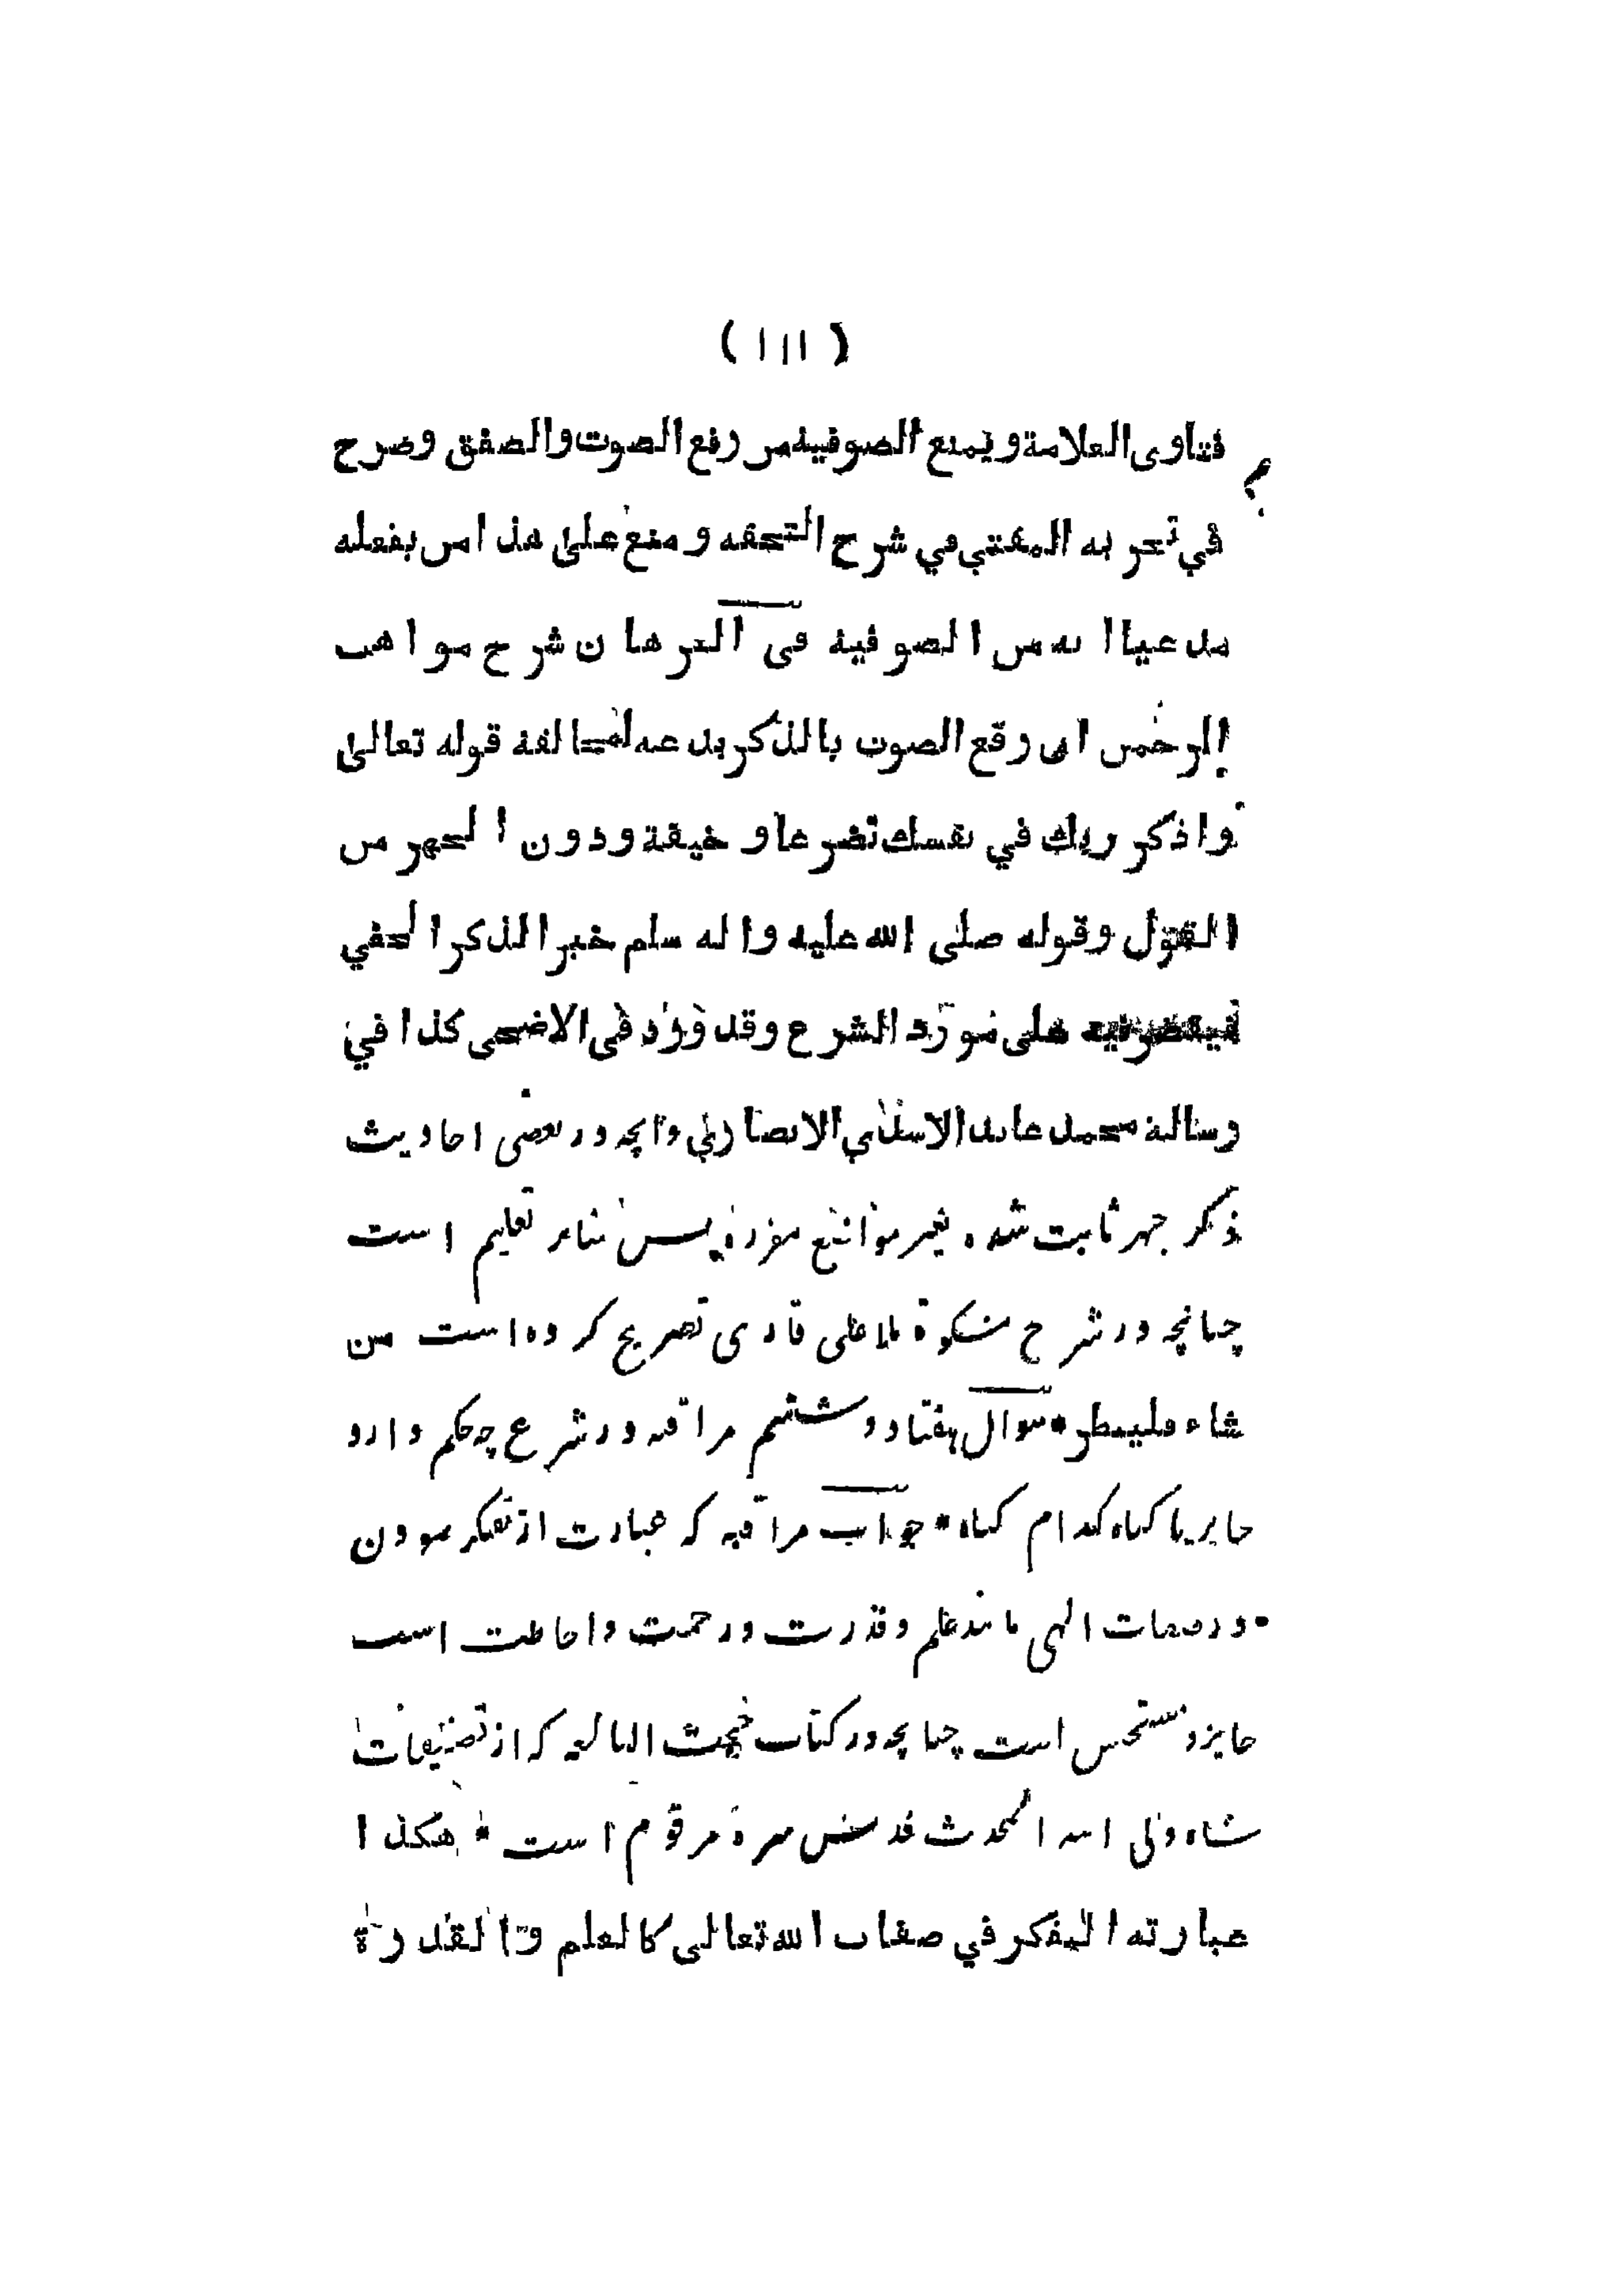 ( ١١١ )
فتاوى العلامة ويمنع الصوفية من رفع الصوت والصفق وصرح
في تحر به المعتبي في شرح التحفه و منع على هذا من يفعله
مدعيا انه من الصوفية في البرهان شرح مواهب
الرحمن ان رفع الصوت بالذكر بدعه لمخالفة قوله تعالى
واذكر ربك في نفسك تضرعا و خيفة ودون الجهر من
القول وقوله صلى الله عليه واله سلم خير الذكر الخفي
فيقصر فيه على مورد الشرع وقد ورد في الاضحى كذا في
رسالة محمد عابد الانصاري وانچه در بعضى احاديث
ذكر جهر ثابت شده بغير مواضع مقرره پس بنابر تعليم است
چنانچه در شرح مشكوة ملا على قارى تصريح كرده است من
شاء فلينظر * سوال هفتاد و ششم مراقبه در شرع چه حكم دارد
جايز يا گناه كدام گناه * جواب مراقبه كه عبارت از تفكر نمودن
در صفات الهى مانند علم و قدرت و رحمت و احاطت است
جايز و مستحسن است چنانچه در كتاب حجت البالغه كه از تصنيفات
شاه ولى الله المحدث قدس سره مرقوم است * هكذا
عبارته التفكر في صفات الله تعالى كالعلم والقدرة